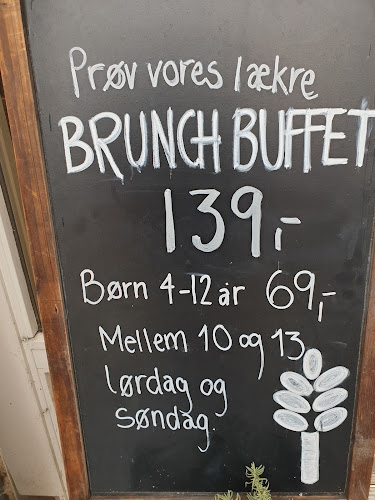 Prøv vores lækre
BRUNCH BUFFET
139,-
Børn 4-12 år 69,-
Mellem 10 og 13
lørdag og
søndag.